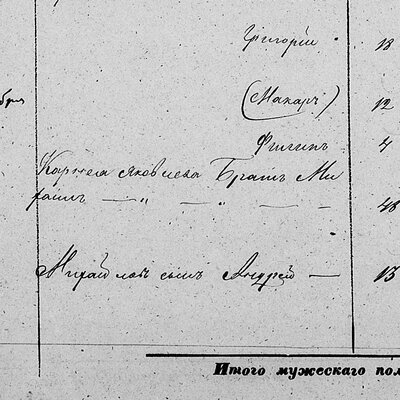 Григорій 18
(Макаръ) 12
4
Корнея Яковлева Братъ Ми
48
Михайловъ сынъ Андрей — 13
Итого мужескаго пол